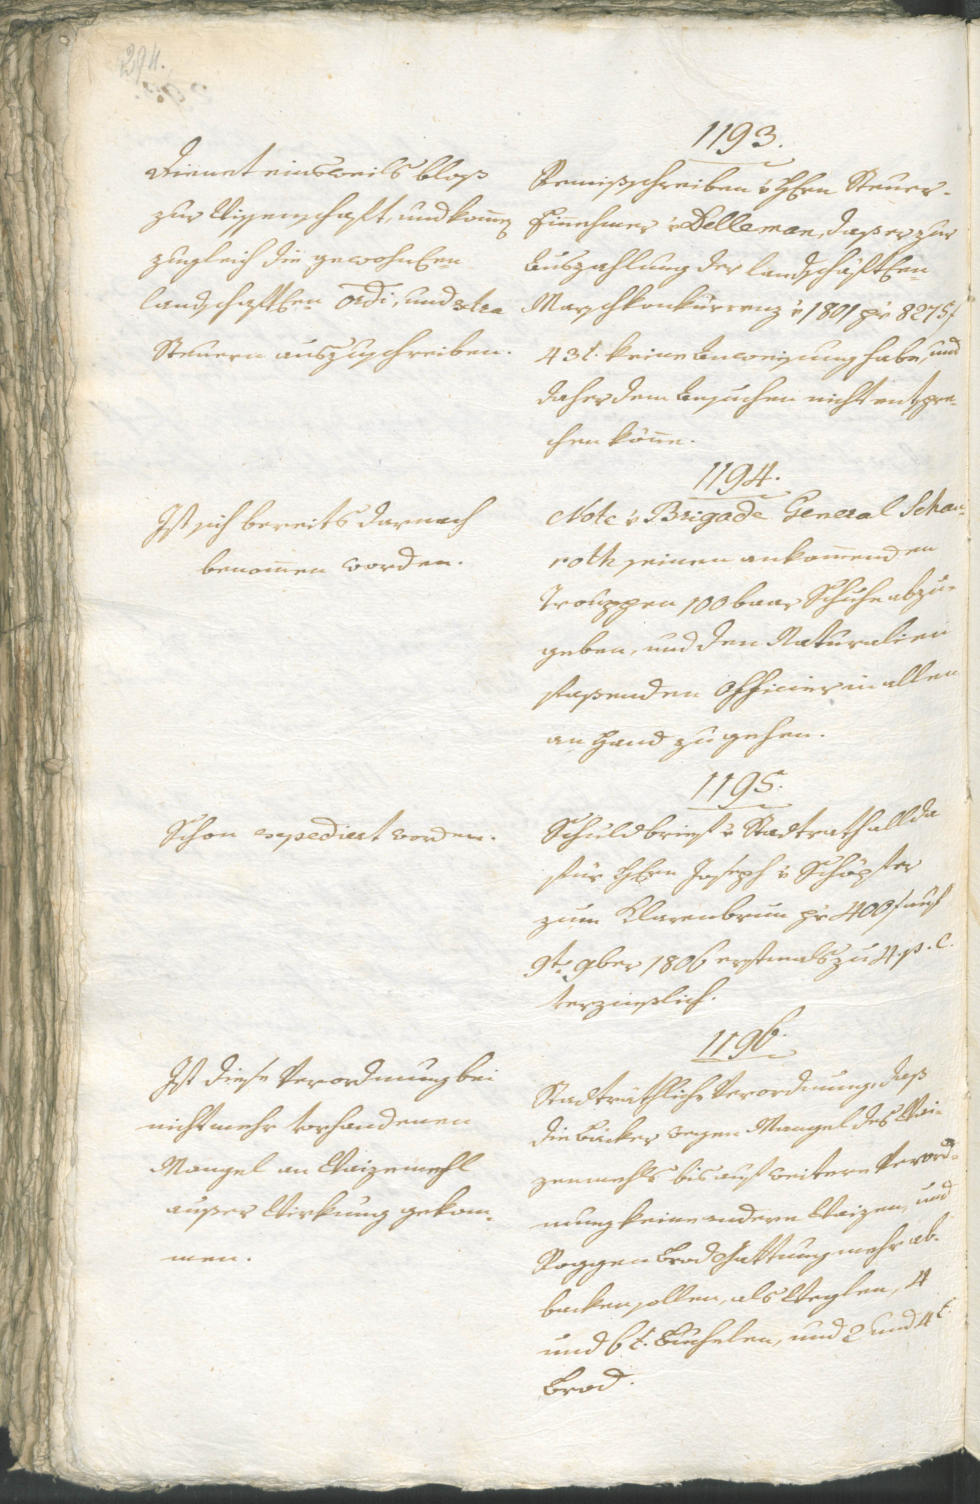 294.
1193.
Dienet einsweils bloß
zur Wissenschaft, und komen
zugleich die gewohnlen
landschaftlen ordi, und xtra
Steuern auszuschreiben.
Remißschreiben v HErn Steuer-
Einnehmer v Delleman, daß er zur
Auszahlung der landschäftlen
Marschkonkurrenz v 1801 pr 8275 f
43 t. keine Anweisung habe, und
daher dem Ansuchen nicht entspre-
chen könne.
1194.
Ist sich bereits darnach
benommen worden.
Note v Brigade General Schau-
roth seinen ankommenden
Trouppen 100 baar Schuhe abzu-
geben, und den Naturalien
fassenden Officier in allen
an Hand zu gehen.
1195.
Schon expediert worden.
Schuldbrief v Stadtrath allda
für HErn Joseph v Schöpfer
zum Klarenbrun pr 400 f auf
9t 9ber 1806 erstmals zu 4. p. C.
verzinslich.
1196.
Ist diese Verordnung bei
nicht mehr vorhandenen
Mangel an Waizenmehl
ausser Wirkung gekom-
men.
Stadträthliche Verordnung, daß
die Bäcker wegen Mangel des Wai-
zenmehls bis auf weitere Verord-
nung keine andern Waizen, und
Roggen Brod Gattung mehr ab-
backen sollen, als Weglen, 4
und 6 t. Büchelen, und 2 und 4 t.
Brod.